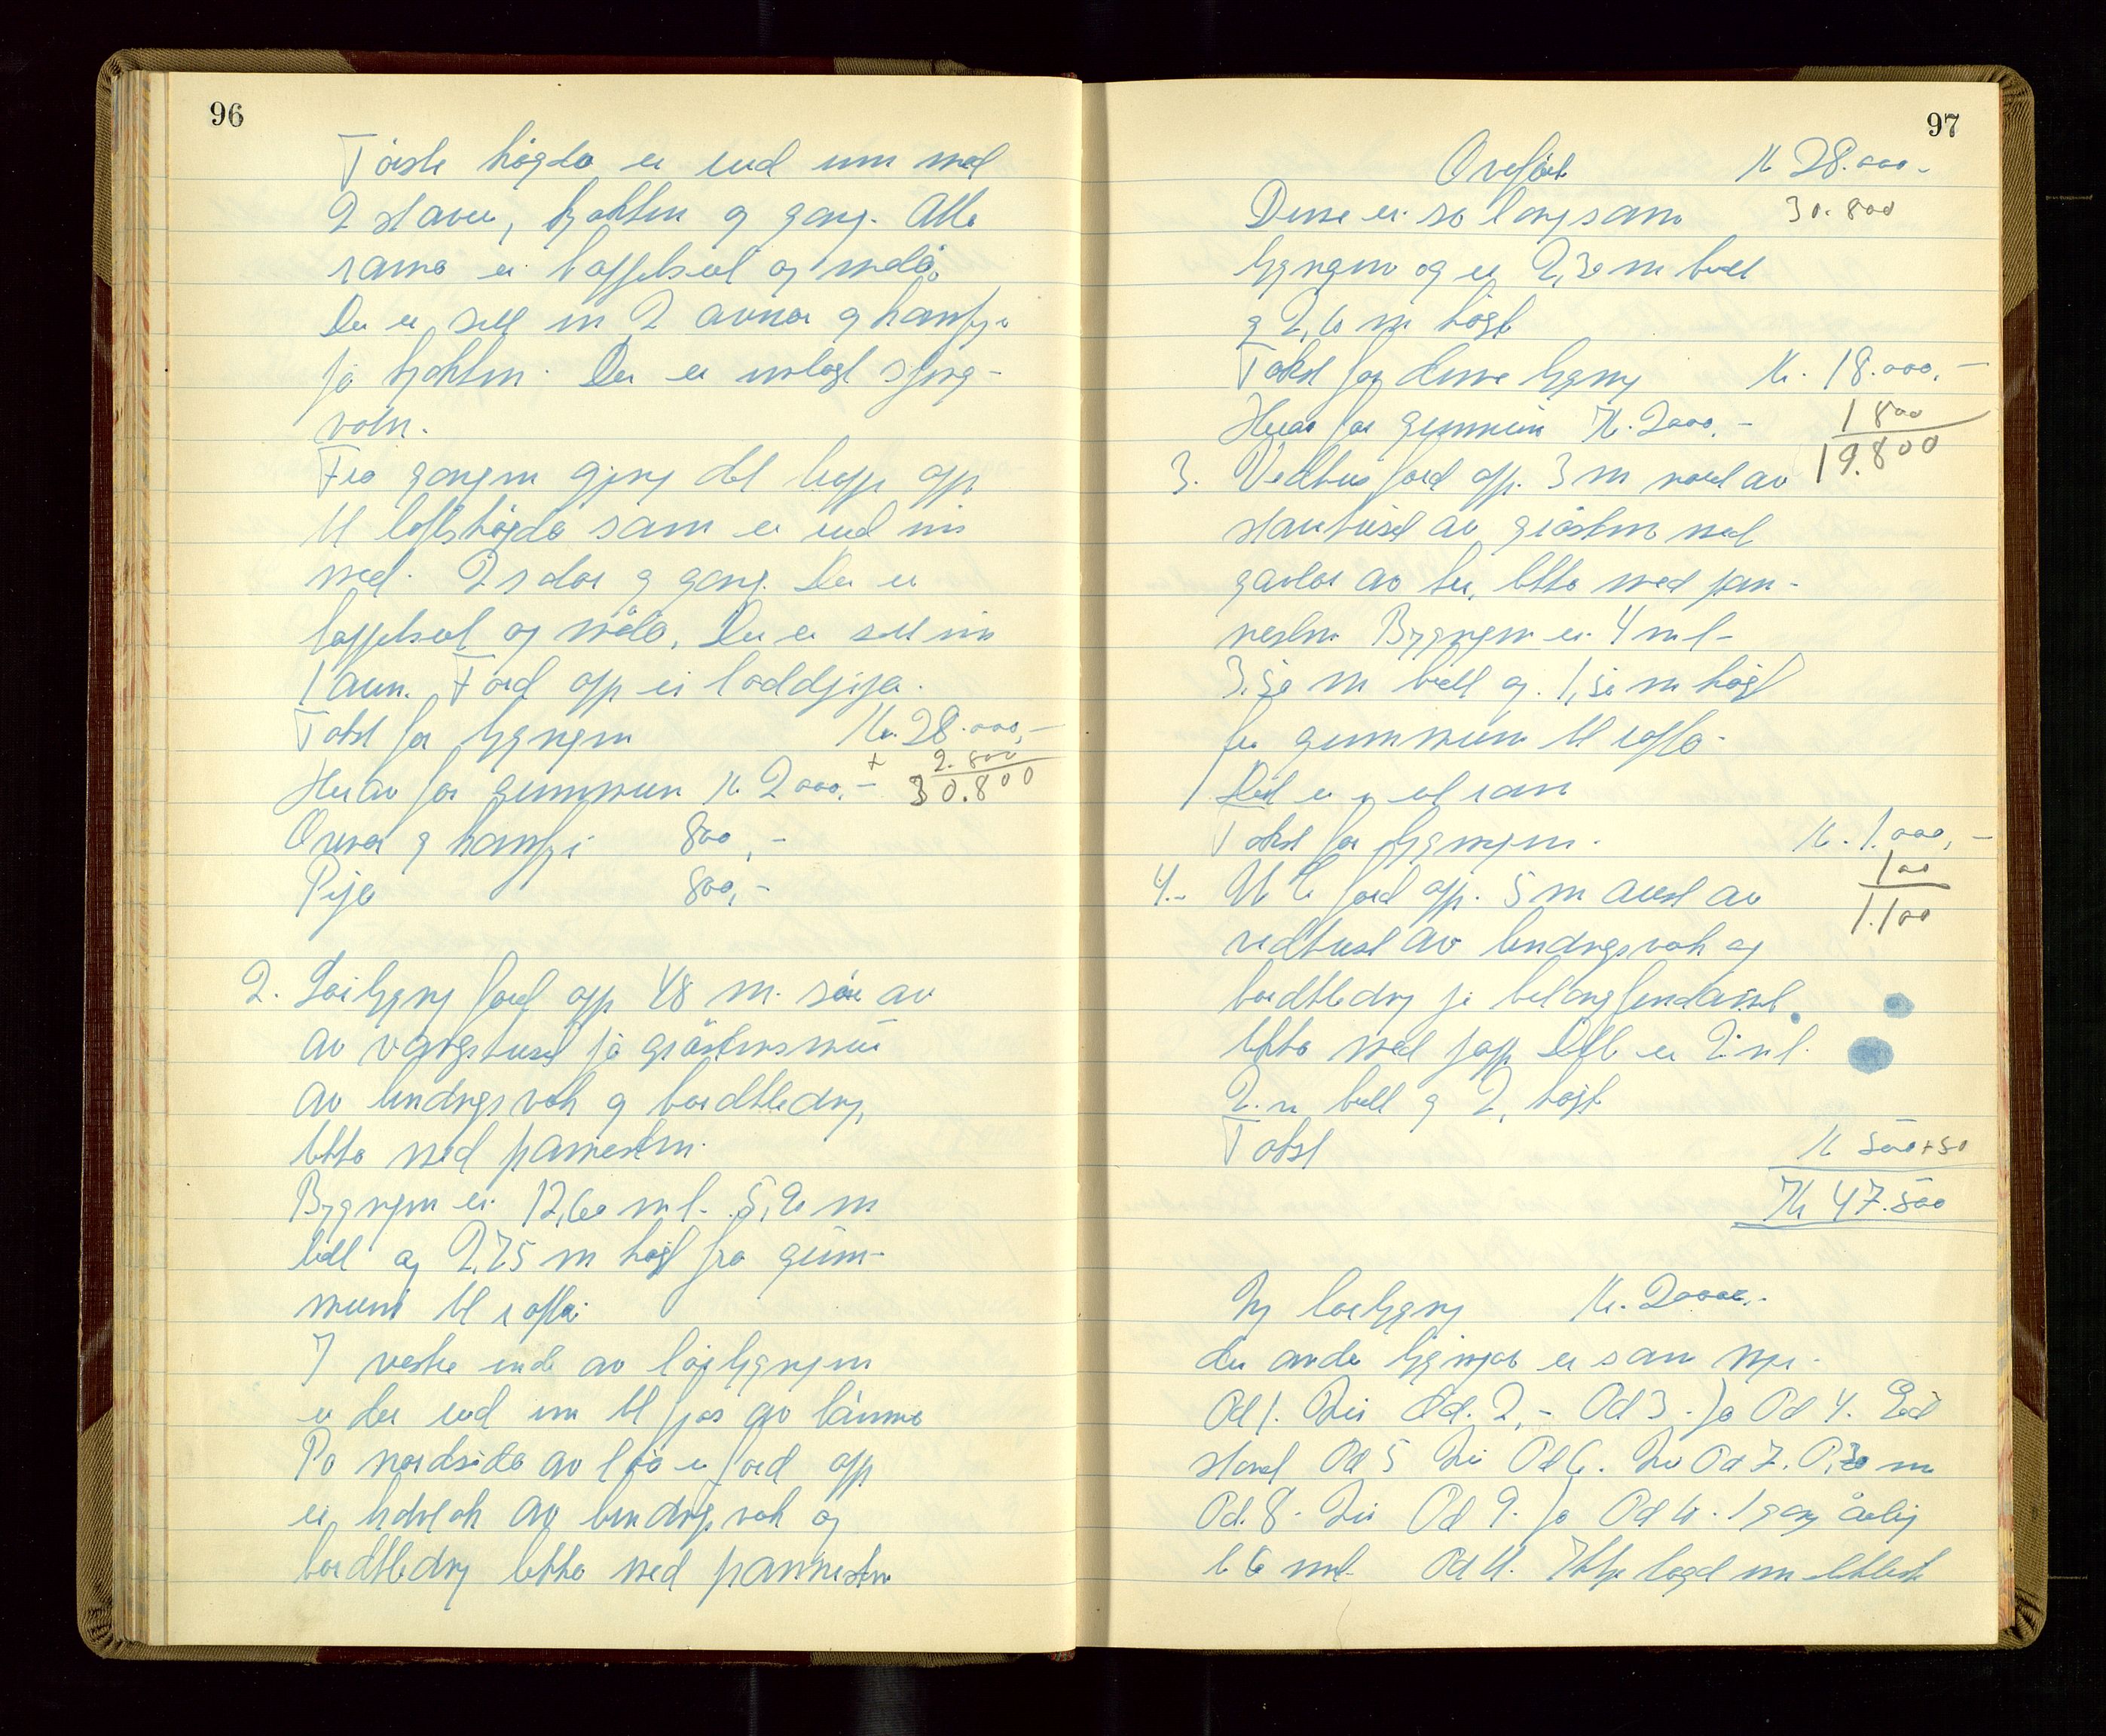 96
Föiste högda er indr inn med
2 stover, kjökken og gang. Alle
romo er tappetsert og måla.
Der er sett inn 2 ovnar og kamfyr
på kjökken. Der er innlagt spring-
vatn.
Fra gangen gjeng det trapp opp
til loftshögda som er indr inn
med 2 rom og gang. Der er
tappetsert og måla. Der er sett inn
1 ovn. Förd opp ei loddpipa.
Takst for bygningen Kr. 28.000,-
Herav for grunnmur Kr 2000,- + 2.800
30.800
Ovnar og kamfyr 800,-
Pipe 800,-
2. Löebygning förd opp 48 m. sör av
av våningshuset på gråsteinsmur
av bindingsverk og bordkledning,
tekka med pannestein.
Bygningen er 12,60 m l. 5,20 m
bredt og 2,75 m högt fra grunn-
muren til rafta.
I vestre ende av löebygningen
er der indr inn til fjos av
På nordsida av löa er förd opp
ei av bindingsverk og
bordkledning tekka med pannestein
97
Overfört Kr 28.000.-
Denne er so lang som 30.800
bygningen og er 2,30 m bredt
og 2,10 m högt
Takst for denne bygning Kr. 18.000,-
Herav for grunnmur Kr. 2000,- 1800
19.800
3. Vedhus förd opp. 3 m nord av
stovehuset av gråstein med
gavlar av tre, tekka med pan-
nestein Bygningen er 4 m l-
3,50 m bredt og. 1,50 m högt
fra grunnmuren til rafta-
Det er i eit rom
Takst for bygningen. Kr. 1.000,-
100
1.100
4.- förd opp. 5 m aust av
vedhuset av bindingsverk og
bordkledning på betongfundament.
tekka med papp Det er 2 m l.
2. m bredt og 2, högt
Takst Kr 500 + 50
Kr 47.500
Ny löebygning Kr. 20000,-
dei andre bygningar er som nye.
Pd 1. Nei Pd. 2,- Pd 3. Ja Pd 4. God
stand Pd 5 Nei Pd 6. Nei Pd 7. 0,30 m
Pd. 8. Nei Pd 9. Ja Pd 10. 1 gong årleg
Pd 11. Ikkje lagd inn elektrisk